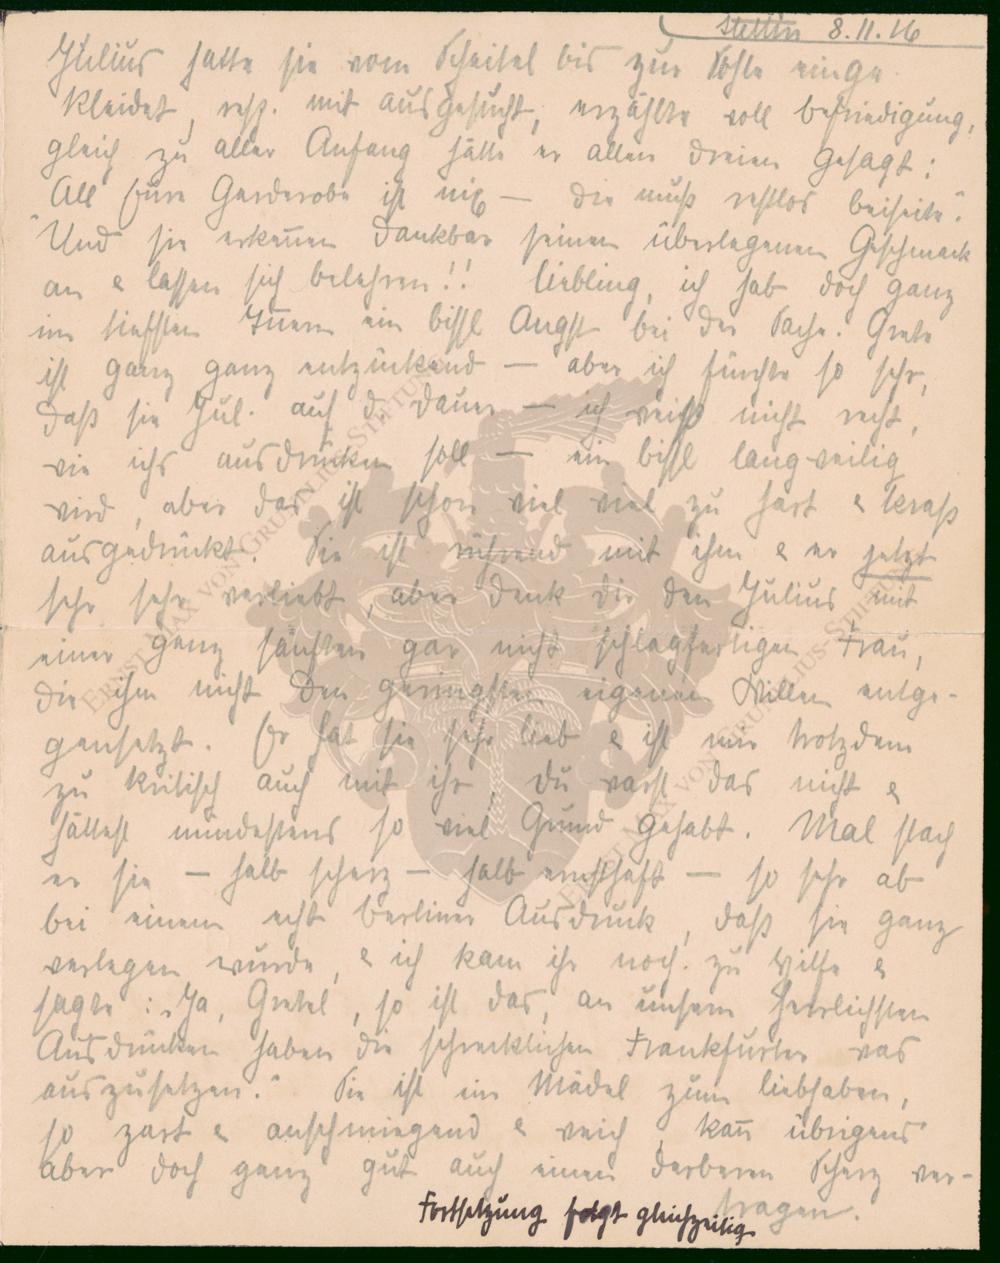 Stettin 8.11.16
Julius hatte sie vom Scheitel bis zur Sohle einge
kleidet, resp. mit ausgesucht, erzählte voll Befriedigung,
gleich zu aller Anfang hätte er allen dreien gesagt:
"All Eure Garderobe ist nix — die muß restlos beiseite."
Und sie erkennen dankbar seinen überlegenen Geschmack
an & lassen sich belehren!! Liebling, ich hab doch ganz
im tiefsten Innern ein bissl Angst bei der Sache. Grete
ist ganz ganz entzückend — aber ich fürchte so sehr,
daß sie Jul. auf d. Dauer — ich weiß nicht recht,
wie ichs ausdrücken soll — ein bissl langweilig
wird, aber das ist schon viel viel zu hart & kraß
ausgedrückt. Sie ist rührend mit ihm & er jetzt
sehr sehr verliebt, aber denk dir den Julius mit
einer ganz sanften gar nicht schlagfertigen Frau,
die ihm nicht den geringsten eigenen Willen entge-
gensetzt. Er hat sie sehr lieb & ist nur trotzdem
zu kritisch auch mit ihr, du warst das nicht &
hättest mindestens so viel Grund gehabt. Mal stach
er sie — halb scherz — halb ernsthaft — so sehr ab
bei einem echt Berliner Ausdruck, daß sie ganz
verlegen wurde, & ich kam ihr noch zu Hilfe &
sagte: "Ja, Gretel, so ist das, an unsern herrlichsten
Ausdrücken haben die schrecklichen Frankfurter was
auszusetzen." Sie ist ein Mädel zum liebhaben,
so zart & anschmiegend & weich, kann übrigens
aber doch ganz gut auch einen derberen Scherz ver-
tragen.
Fortsetzung folgt gleichzeitig
ERNST MAX VON GRUNELIUS-STIFTUNG
ERNST MAX VON GRUNELIUS-STIFTUNG